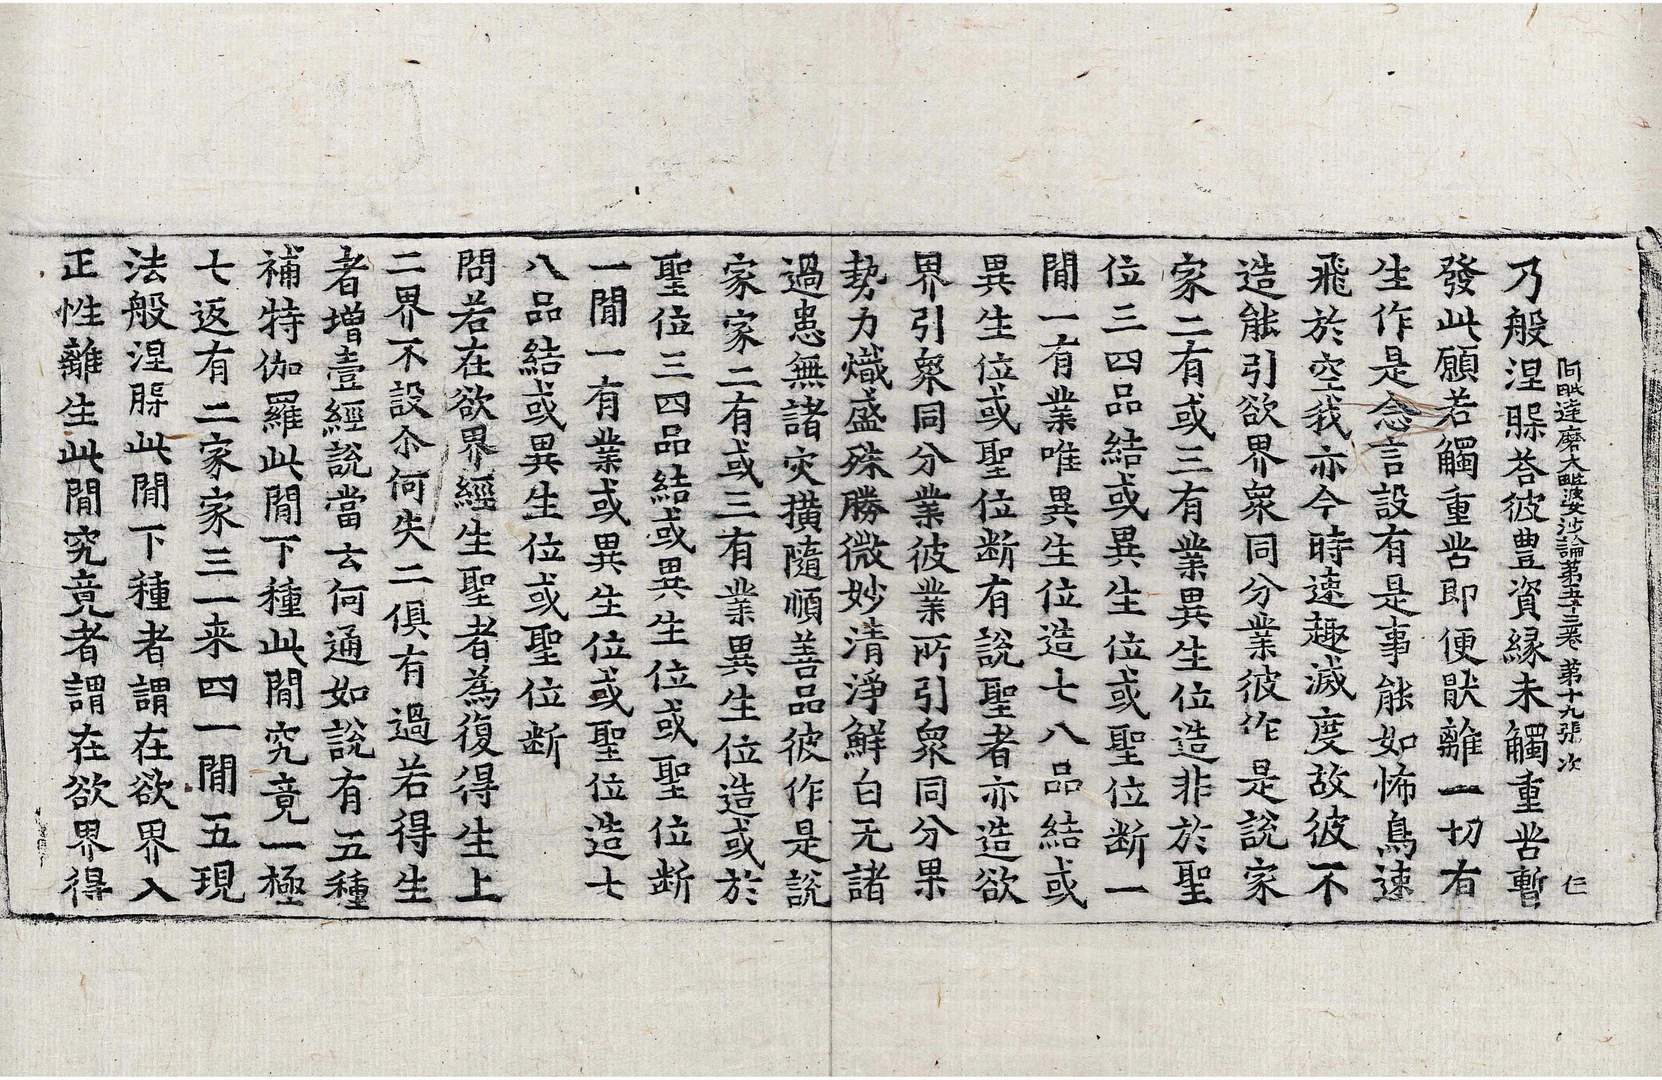 阿毗達磨大毗婆沙論第五十三卷 第十九張 次 仁
乃般涅槃荅彼豊資縁未觸重苦暫
發此願若觸重苦即便猒離一切有
生作是念言設有是事能如怖鳥速
飛於空我亦今時速趣滅度故彼不
造能引欲界衆同分業彼作是說家
家二有或三有業異生位造非於聖
位三四品結或異生位或聖位断一
閒一有業唯異生位造七八品結或
異生位或聖位断有說聖者亦造欲
界引衆同分業彼業所引衆同分果
勢力熾盛殊勝微妙清淨鮮白无諸
過患無諸灾撗隨順善品彼作是說
家家二有或三有業異生位造或於
聖位三四品結或異生位或聖位断
一閒一有業或異生位或聖位造七
八品結或異生位或聖位断
問若在欲界經生聖者為復得生上
二界不設尒何失二俱有過若得生
者增壹經說當云何通如說有五種
補特伽羅此閒下種此閒究竟一極
七返有二家家三一来四一閒五現
法般涅槃此閒下種者謂在欲界入
正性離生此閒究竟者謂在欲界得